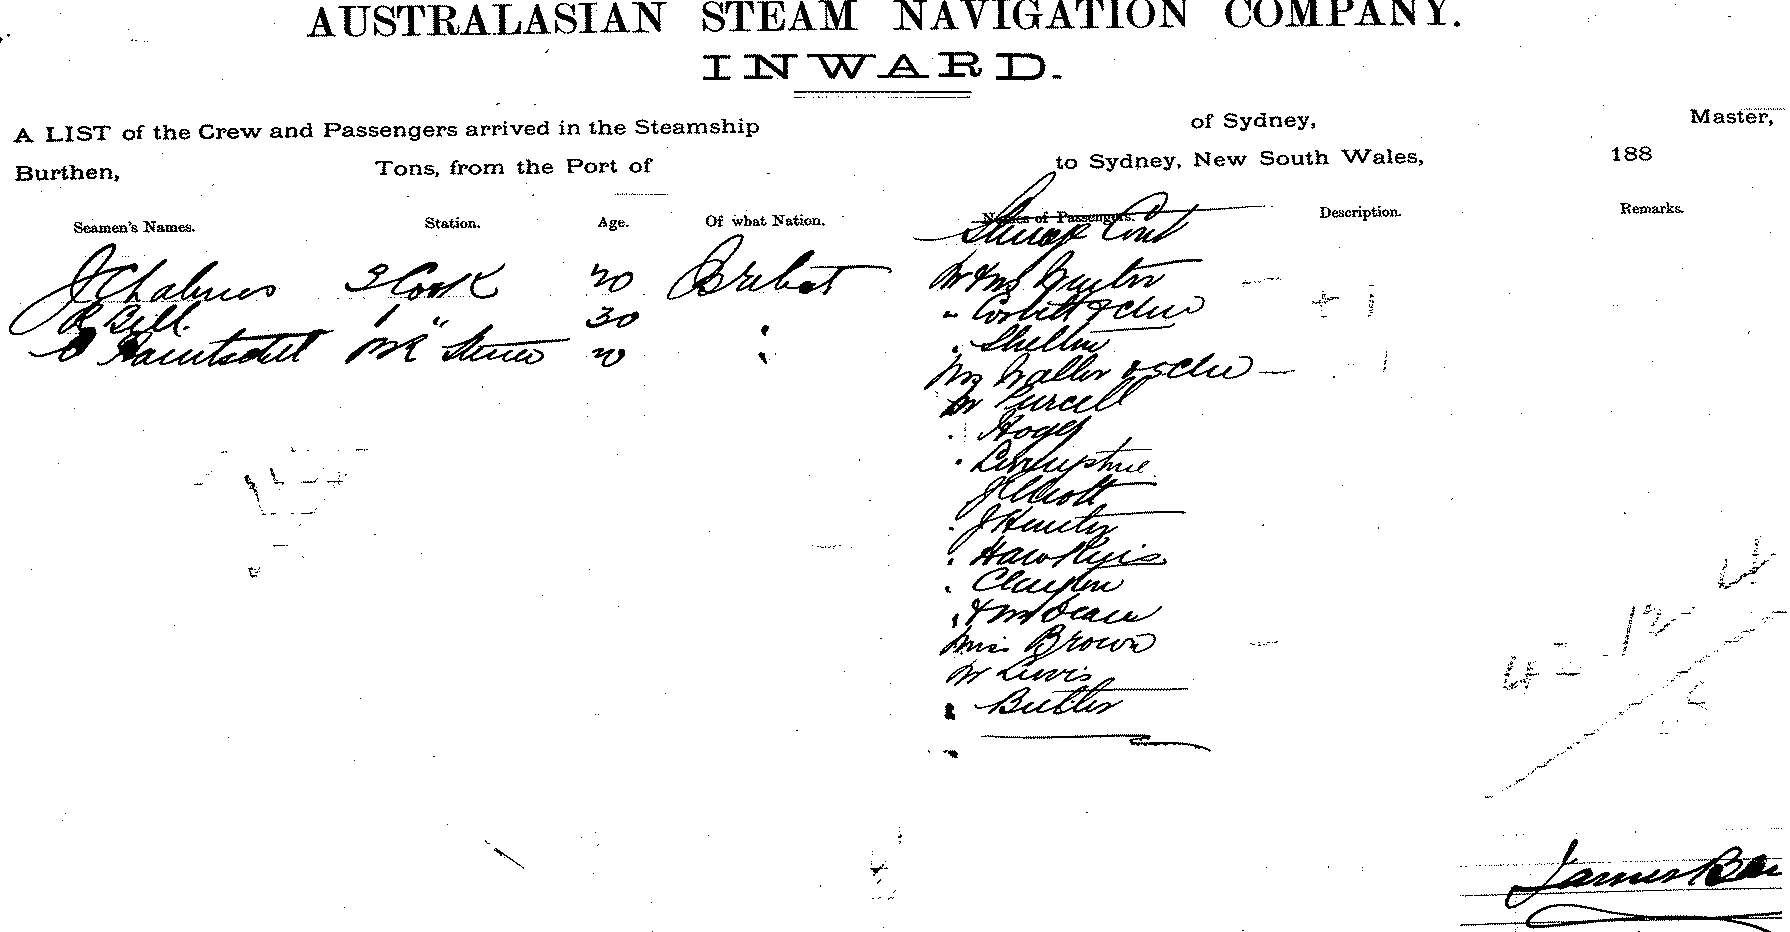 AUSTRALASIAN STEAM NAVIGATION COMPANY.
INWARD.
A LIST of the Crew and Passengers arrived in the Steamship of Sydney, Master,
Burthen, Tons, from the Port of to Sydney, New South Wales, 188
Seamen's Names. Station. Age. Of what Nation. Names of Passengers. Description. Remarks.
Steerage Cont
J Chalmers 3 Cook 20
R Bell 1 " 30
20
Mr & Mrs
" Corbett &
. Shelton
Mrs Waller &
Mr Purcell
. Hogg
. Livingstone
J Elliott
. J Hunter
. Hawkins
. Clayton
. & Mrs Deane
Miss Brown
Mr Lewis
Butler
12
James